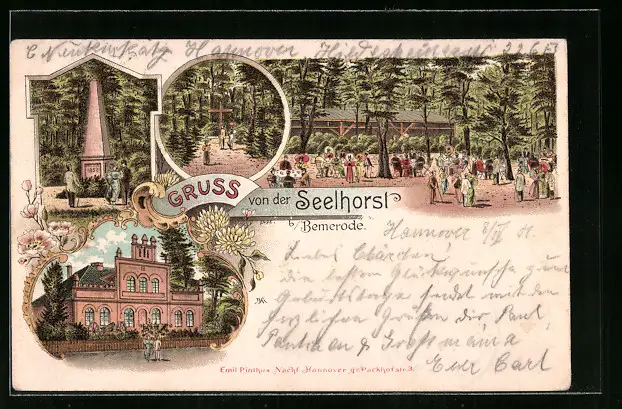 C Neukirch Hannover Hildesheimerstr 226 B
GRUSS von der Seelhorst
b/Bemerode.
Hannover 8/IV 01
Liebes Clärchen
die besten Glückwünsche zum
Geburtstage sendet mit den
herzlichen Grüßen von Paul
Tante an & Großmama
Euer Carl
Emil Pinthus Nachf. Hannover gr. Packhofstr. 3.